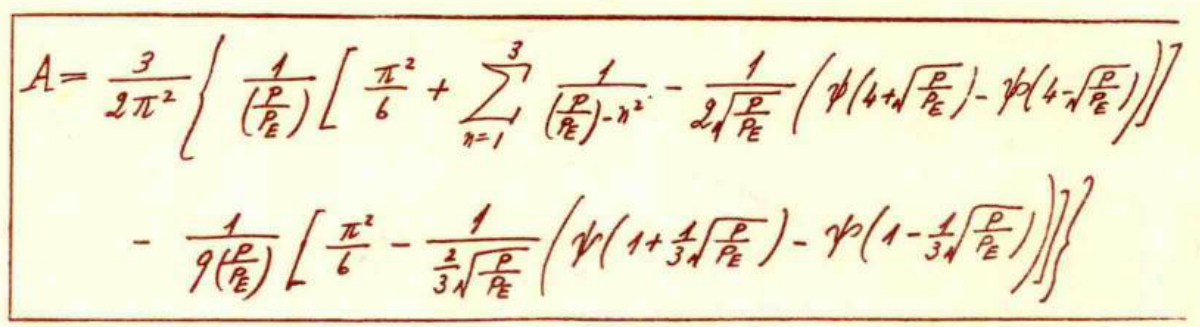 A = \frac{3}{2\pi^2} \left\{ \frac{1}{\left(\frac{P}{P_E}\right)} \left[ \frac{\pi^2}{6} + \sum_{n=1}^{3} \frac{1}{\left(\frac{P}{P_E}\right) - n^2} - \frac{1}{2\sqrt{\frac{P}{P_E}}} \left( \psi\left(4 + \sqrt{\frac{P}{P_E}}\right) - \psi\left(4 - \sqrt{\frac{P}{P_E}}\right) \right) \right] \right.
\left. - \frac{1}{9\left(\frac{P}{P_E}\right)} \left[ \frac{\pi^2}{6} - \frac{1}{\frac{2}{3}\sqrt{\frac{P}{P_E}}} \left( \psi\left(1 + \frac{1}{3}\sqrt{\frac{P}{P_E}}\right) - \psi\left(1 - \frac{1}{3}\sqrt{\frac{P}{P_E}}\right) \right) \right] \right\}